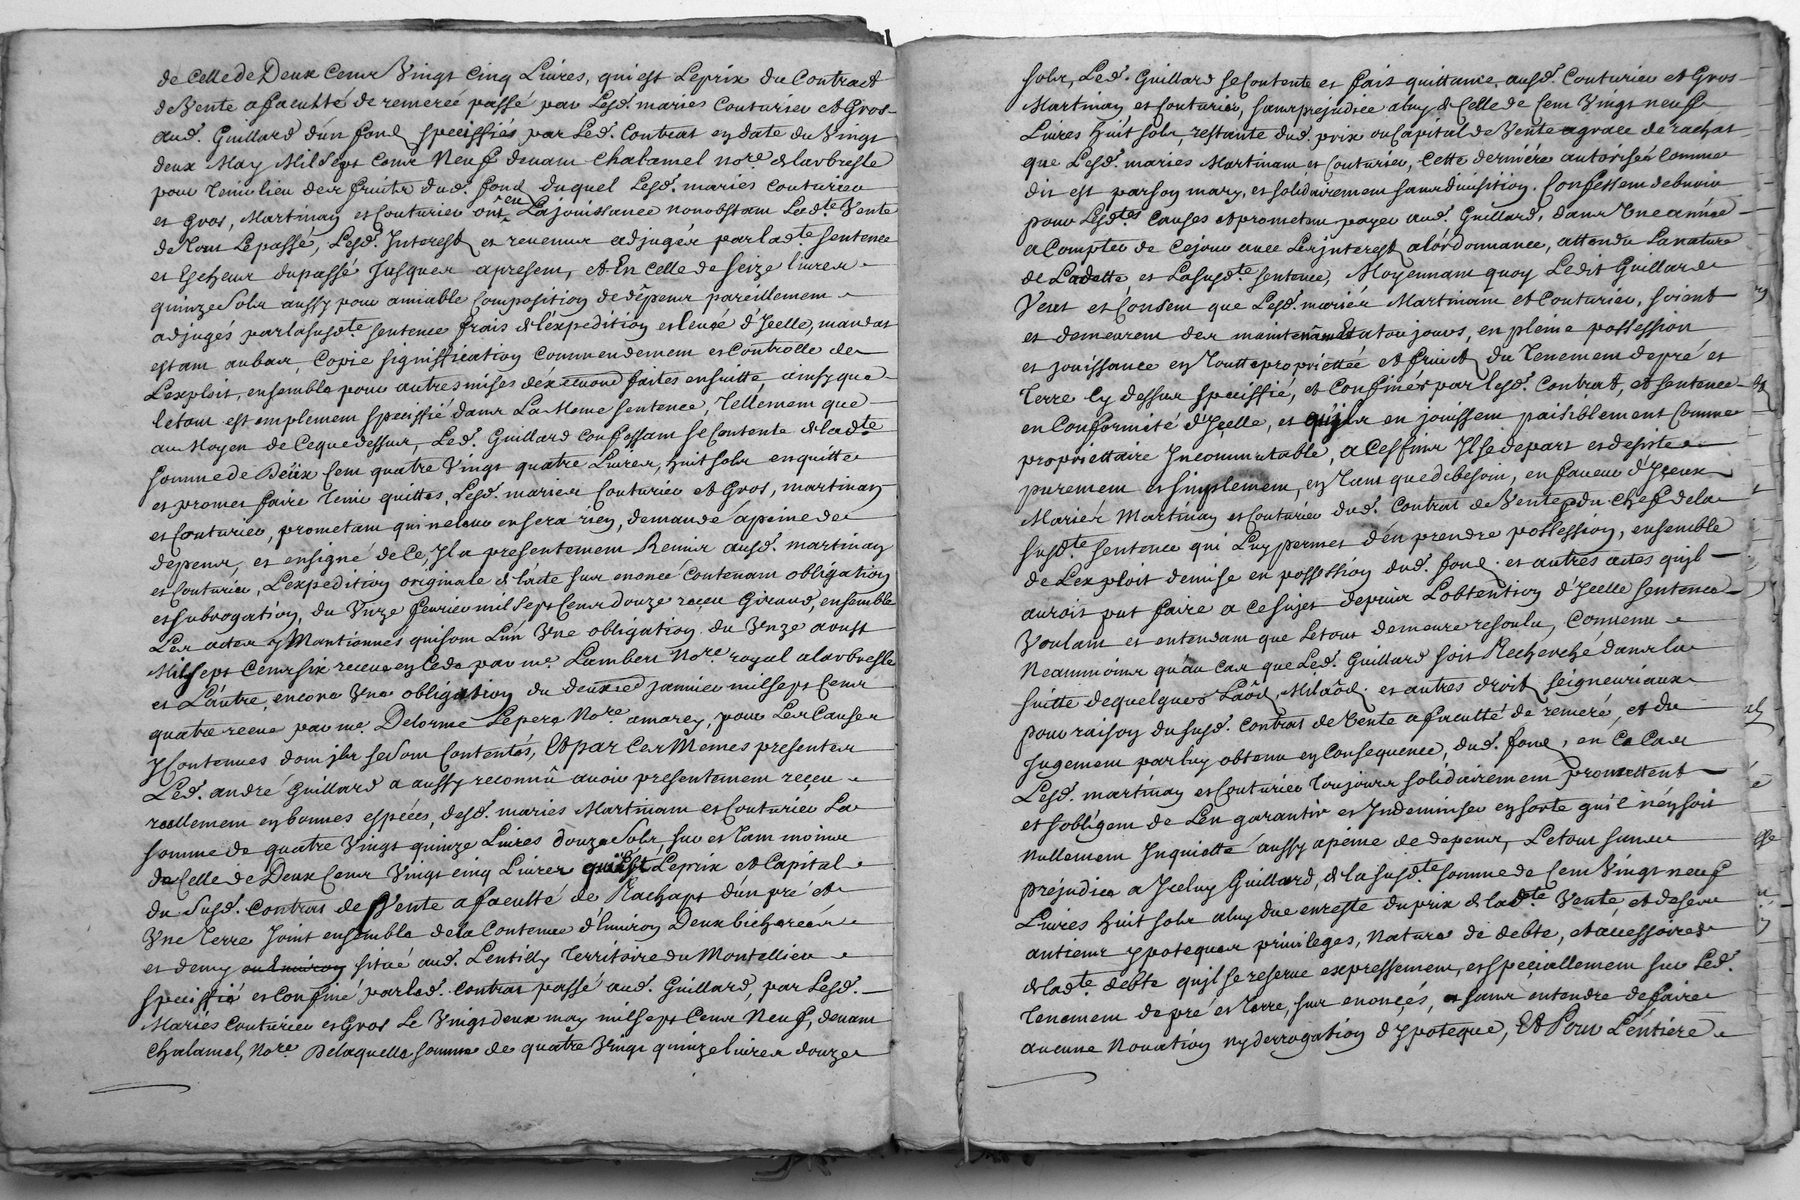 de celle de Deux Cents Vingt Cinq Livres, qui est Le prix du Contract
de Vente a faculté de remeree passé par Lesd. maries Couturier et Gros
aud. Guillard d'un fond speciffiés par Led. Contrat en date du Vingt
deux May Mil Sept Cents Neuf devant Chalamel nore. de larbresle
pour Tenir lieu des fruits dud. fond duquel Lesd. maries Couturier
et Gros, Martinay et Couturier ont eu La jouissance nonobstant Ladte Vente
de Tout Le passé, Lesd. Interest et revenus adjugés par ladte sentence
et Escheus du passé Jusques a present, et En celle de Seize livres
quinze Sols aussy pour amiable Composition de dépens pareillement
adjugés par lasusdte sentence frais de l'expedition et levée d'Icelle, mandat
estant aubas, Copie signiffication Commendement et Controlle de
L'exploit, ensemble pour autres mises d'éxecution faites ensuitte, ainsy que
le tout est amplement speciffié dans La Meme sentence, Tellement que
au Moyen de Ceque dessus, Led. Guillard Confessant se Contente de ladte
somme de Deux Cent quatre Vingt quatre Livres, huit sols en quitte
et promet faire Tenir quittes, Lesd. maries Couturier et Gros, martinay
et Couturier, prometant qu'il ne leur en sera rien demandé a peine de
depens, et ensigne de Ce, Il a presentement Remis ausd. martinay
et Couturier, L'expedition originale de l'acte sus enoncé Contenant obligation
et subrogation, du Unze fevrier mil Sept Cents douze receu Giraud, ensemble
Les actes y Mantionnés qui sont L'un Une obligation du Unze aoust
Mil Sept Cents six receue en Cede par me. Lambert Nore. royal a larbresle
et L'autre, encore Une obligation du deuxie janvier mil Sept Cens
quatre receue par me. Delorme Le pere Nore. amorey, pour Les Causes
y Contenues dont ils se sont Contentés, Et par Ces Memes presentes
Led. andré Guillard a aussy reconnû avoir presentement receu
reellement en bonnes espéces, desd. maries Martinant et Couturier La
somme de quatre Vingt quinze Livres douze Sols, sur et Tant moins
de Celle de Deux Cens Vingt cinq Livres qui est Le prix et Capital
du Susd. Contrat de Vente a faculté de Rachapt d'un pré et
Une Terre Joint ensemble de la Contenue d'Environ Deux bicherées
et demy situé aud. Lentilly Territoire du Montellier
speciffié et Confiné par led. Contrat passé aud. Guillard, par Lesd.
Mariés Couturier et Gros Le Vingt deux may mil sept Cens Neuf, devant
Chalamel, Nore. De laquelle somme de quatre Vingt quinze livres douze
sols, Led. Guillard se Contente et fait quittance ausd. Couturier et Gros
Martinay et Couturier, sans prejudice a luy de Celle de Cent Vingt neuf
Livres huit sols, restante dud. prix ou Capital de Vente a grace de rachat
que Lesd. maries Martinant et Couturier, Cette derniére autorisée Comme
dit est par son mary, et solidairement sans division. Confessent debvoir
pour Lesdtes Causes et prometent payer aud. Guillard, dans Une année
a Compter de Cejour avec Les Interest a l'órdonnance, attendu La nature
de Ladette, et Lasusdte sentence, Moyennant quoy Ledit Guillard
Veut et Consent que Lesd. mariés Martinant et Couturier, soient
et demeurent des maintenant Et a toujours, en pleine possession
et jouissance en Toutte propriettée et fruict du Tenement de pré et
Terre Cy dessus speciffié, et Confinés par lesd. Contrat, et sentence
en Conformité d'Icelle, et qu'ils en jouissent paisiblement Comme
propriettaire Incommutable, a Ces fins Il se depart et desiste
purement et simplement, en Tant que de besoin, en faveur d'Iceux
Mariés Martinay et Couturier dud. Contrat de Vente, du Chef de la
susdte sentence qui Luy permet d'en prendre possession, ensemble
de L'exploit de mise en possession dud. fond. et autres actes quil
auroit put faire a ce sujet depuis L'obtention d'Icelle sentence
Voulant et entendant que Le tout demeure resoulu, Convenu
Neanmoins qu'au Cas que Led. Guillard soit Recherché dans la
suitte de quelques Laôd, Milaôd. et autres droit seigneuriaux
pour raison du susd. Contrat de Vente a faculté de remeré, et du
Jugement par luy obtenu en Consequence, dud. fond, en Ce Cas
Lesd. martinay et Couturier Toujours solidairement promettent
et s'obligent de L'en garantir et Indemniser en sorte qu'il n'en soit
Nullement Inquietté aussy a peine de depens, Le tout sans
préjudice a Iceluy Guillard, de la susdte somme de Cent Vingt neuf
Livres huit sols a luy due en reste du prix de ladte Vente, et de ses
antiens ypoteques privileges, Nature de debte, et accessoires
de ladte debte qu'il se reserve expressement, et speciallement sur Led.
Tenement de pré et Terre, sus enoncés, et sans entendre de faire
aucune Novation ny derrogation d'ypoteque, Et Pour L'entiere